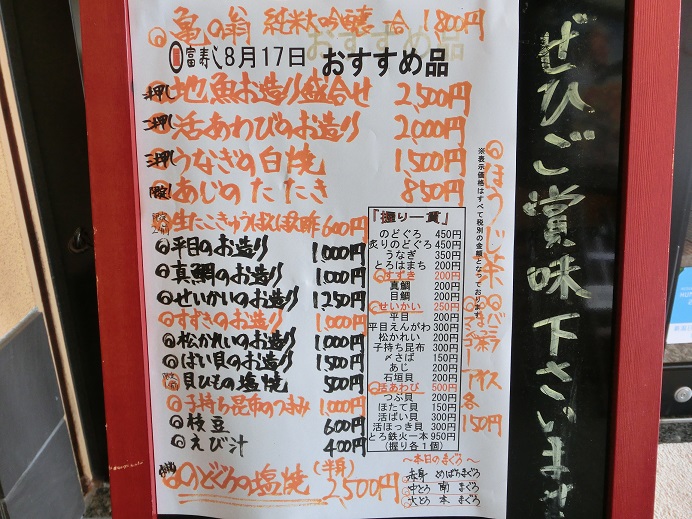 亀の翁 純米大吟醸 一合 1,800円
富寿し 8月17日 おすすめ品
一押し 地魚お造り盛合せ 2,500円
二押し 活あわびのお造り 2,000円
三押し うなぎの白焼 1,500円
限定 あじのたたき 850円
生たこきゅうばくぽん酢 600円
平目のお造り 1,000円
真鯛のお造り 1,000円
せいかいのお造り 1,250円
すずきのお造り 1,000円
松かれいのお造り 1,000円
ばい貝のお造り 1,500円
貝ひもの塩焼 500円
子持ち昆布のつまみ 1,000円
枝豆 600円
えび汁 400円
のどぐろの塩焼 (半身) 2,500円
『握り一貫』
のどぐろ 450円
炙りのどぐろ 450円
うなぎ 350円
とろはまち 200円
すずき 200円
真鯛 200円
目鯛 200円
せいかい 250円
平目 200円
平目えんがわ 300円
松かれい 200円
子持ち昆布 300円
〆さば 150円
あじ 200円
石垣貝 200円
活あわび 500円
つぶ貝 200円
ほたて貝 150円
活ばい貝 300円
活ほっき貝 300円
とろ鉄火一本 950円
(握り各1個)
～本日のまぐろ～
赤身 めばちまぐろ
中とろ 南まぐろ
大とろ 本まぐろ
※表示価格はすべて税別の金額となっております。
ほうじ茶
バニラ
抹茶
マンゴー
アイス 各150円
ぜひご賞味下さいませ